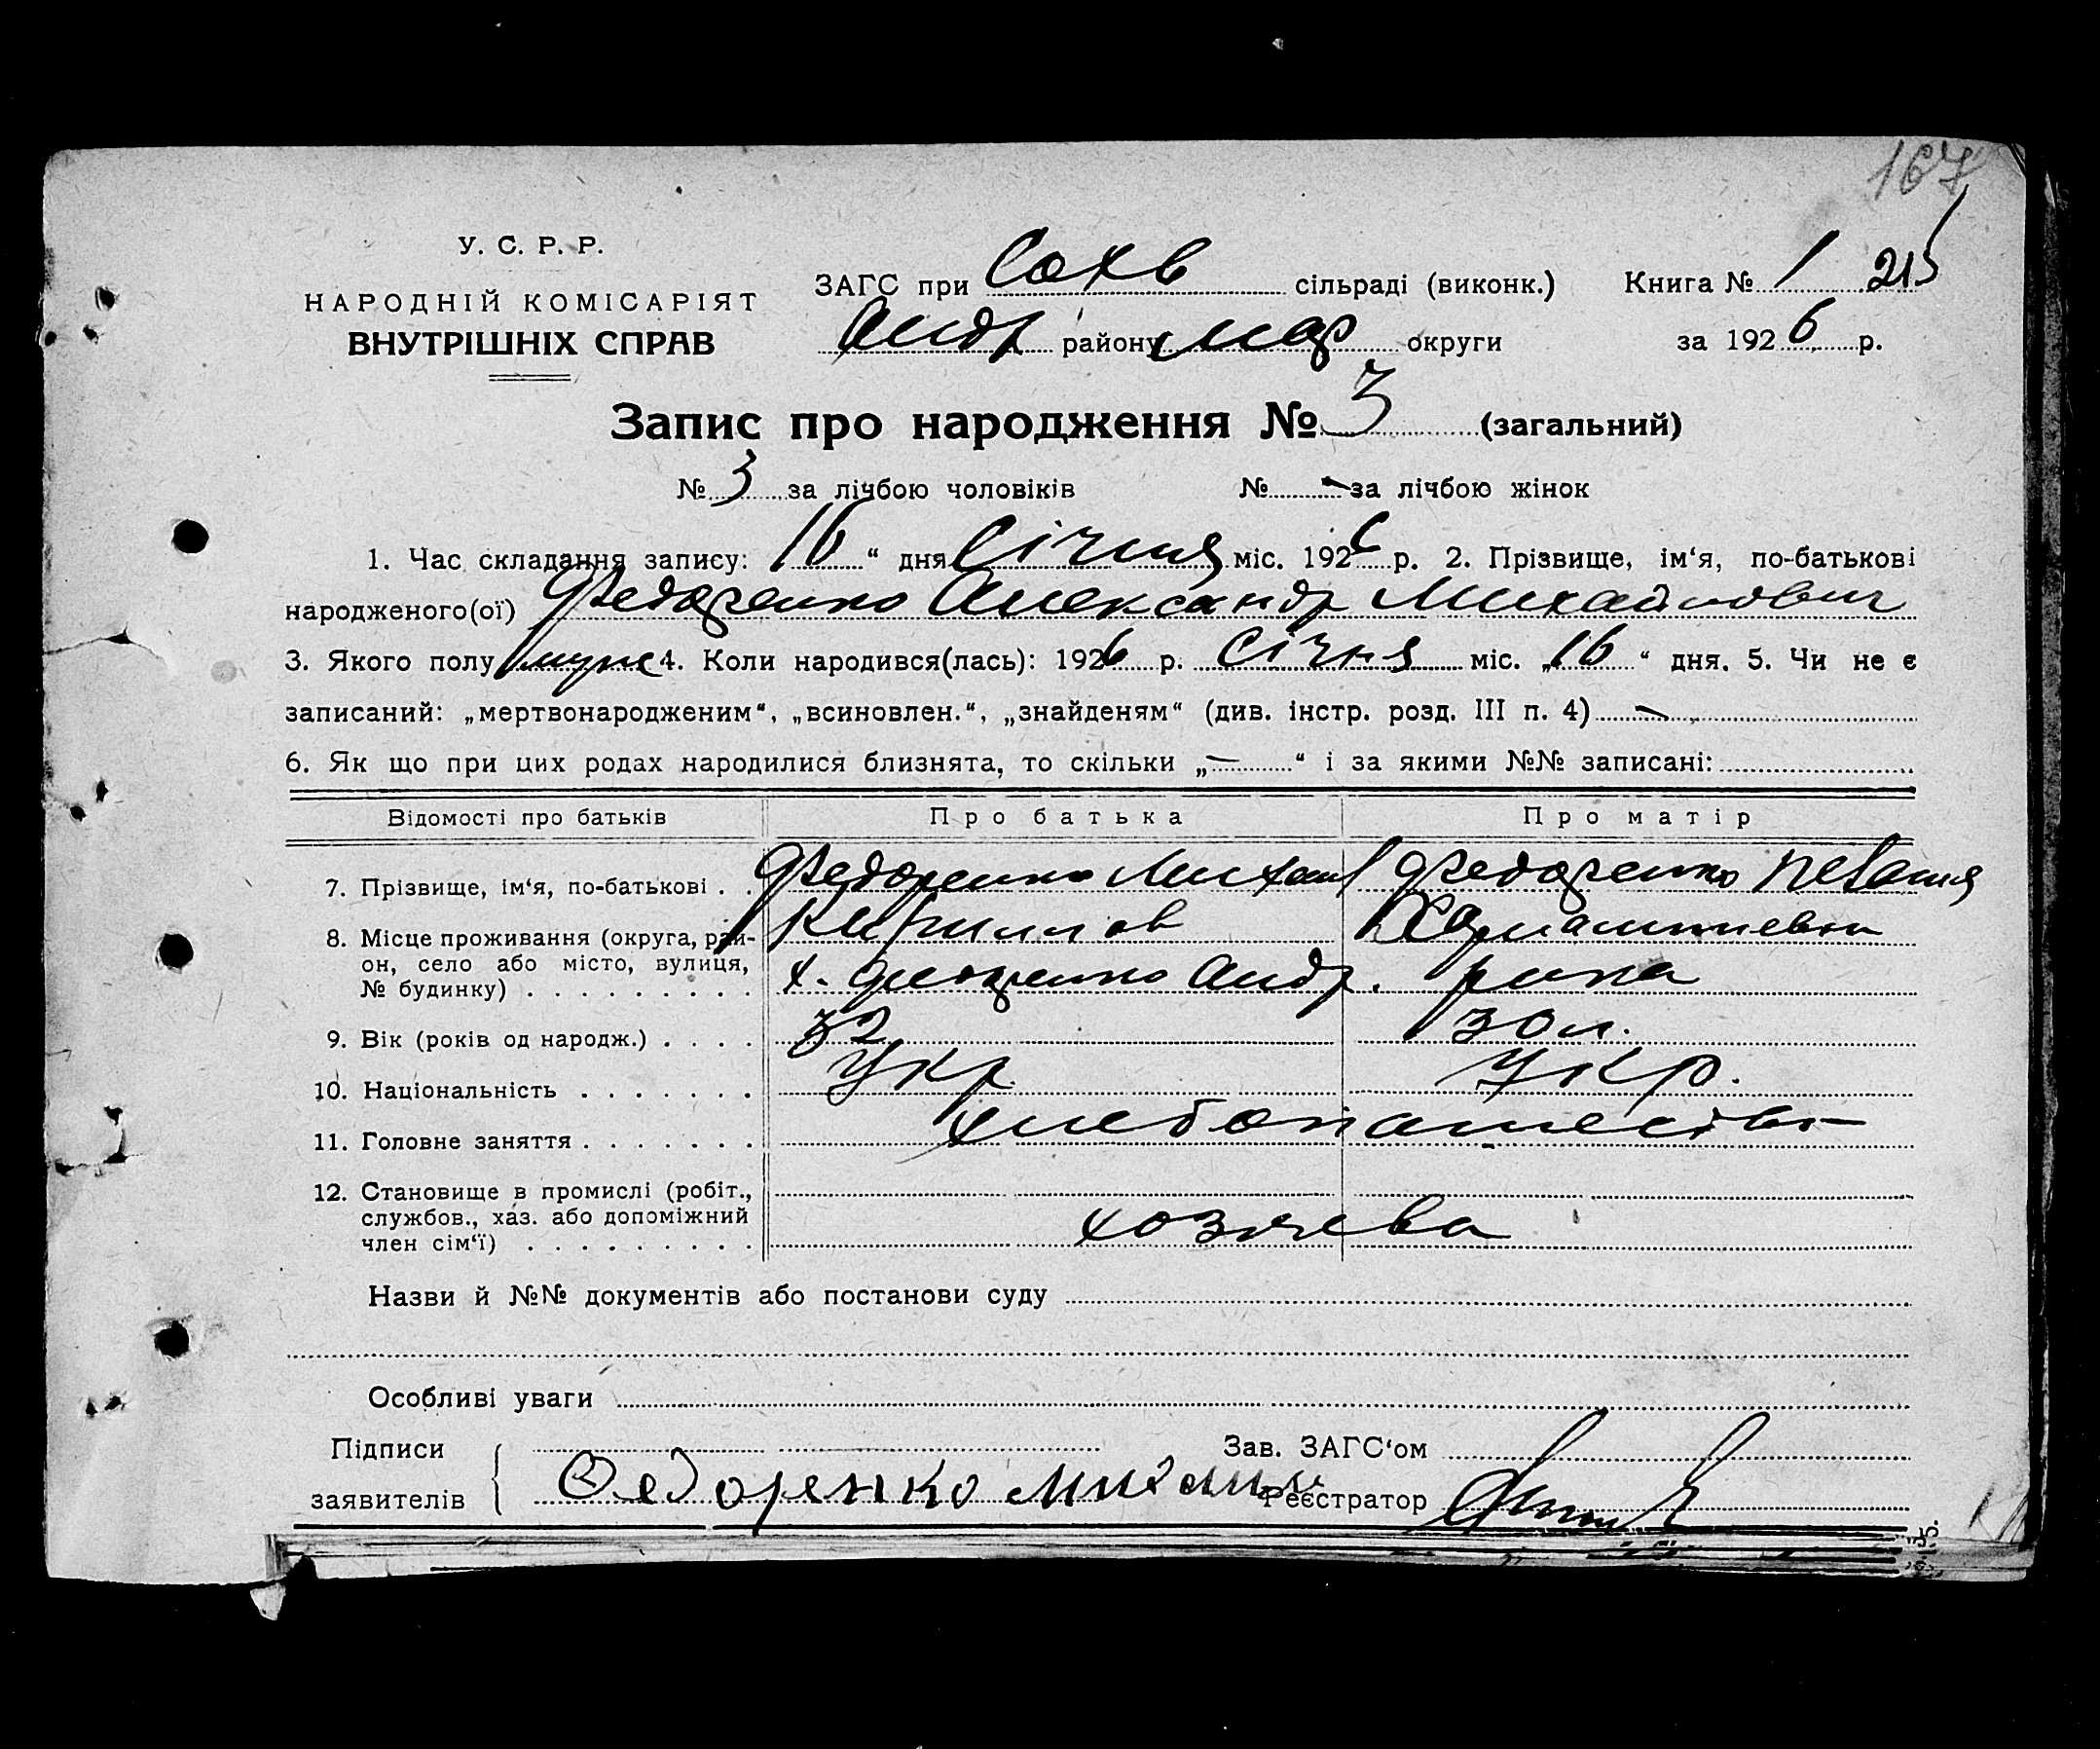 167
У. С. Р. Р.
НАРОДНІЙ КОМІСАРІЯТ
ВНУТРІШНІХ СПРАВ
ЗАГС при Сохв сільраді (виконк.) Книга № 1 215
Андр району Мар округи за 1926 р.
Запис про народження № 3 (загальний)
№ 3 за лічбою чоловіків № — за лічбою жінок
1. Час складання запису: 16 “ дня Січня міс. 1926 р. 2. Прізвище, ім‘я, по-батькові
народженого(ої) Федоренко Александр Михайлович
3. Якого полу муж 4. Коли народився(лась): 1926 р. Січня міс. „16“ дня. 5. Чи не є
записаний: „мертвонародженим“, „всиновлен.“, „знайденям“ (див. інстр. розд. III п. 4) —
6. Як що при цих родах народилися близнята, то скільки „—“ і за якими №№ записані:
Відомості про батьків Про батька Про матір
7. Прізвище, ім‘я, по-батькові . . Федоренко Михаил Федоренко
Кириллов
8. Місце проживання (округа, рай-
он, село або місто, вулиця,
№ будинку) . . . . . . . . . х. Андр. рика
9. Вік (років од народж.) . . . . 32 30 л.
10. Національність . . . . . . . Укр Укр.
11. Головне заняття . . . . . . . хлебопашество
12. Становище в промислі (робіт.,
службов., хаз. або допоміжний
член сім‘ї) . . . . . . . . . хозяева
Назви й №№ документів або постанови суду
Особливі уваги
Підписи Зав. ЗАГС‘ом
заявителів Федоренко Михаил Реєстратор